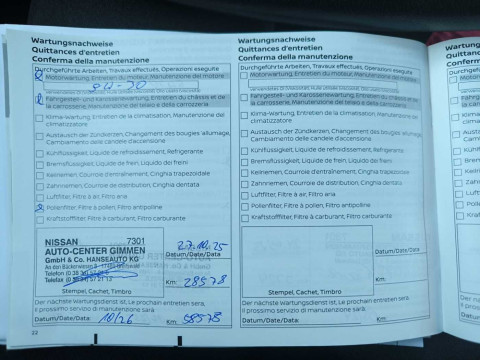 Wartungsnachweise
Quittances d'entretien
Conferma della manutenzione
Durchgeführte Arbeiten, Travaux effectués, Operazioni eseguite
Motorwartung, Entretien du moteur, Manutenzione del motore
Fahrgestell- und Karosseriewartung, Entretien du châssis et de
la carrosserie, Manutenzione del telaio e della carrozzeria
Klima-Wartung, Entretien de la climatisation, Manutenzione del
climatizzatore
Austausch der Zündkerzen, Changement des bougies d'allumage,
Cambiamento delle candele d'accensione
Kühlflüssigkeit, Liquide de refroidissement, Refrigerante
Bremsflüssigkeit, Liquide de freins, Liquido dei freni
Keilriemen, Courroie d'entraînement, Cinghia trapezoidale
Zahnriemen, Courroie de distribution, Cinghia dentata
Luftfilter, Filtre à air, Filtro aria
Pollenfilter, Filtre à pollen, Filtro antipolline
Kraftstofffilter, Filtre à carburant, Filtro carburante
NISSAN 7301
AUTO-CENTER GIMMEN
GmbH & Co. HANSEAUTO KG
Telefon
Telefax
Stempel, Cachet, Timbro
27.10.25
Datum/Date/Data
Km: 28578
Der nächste Wartungsdienst ist, Le prochain entretien sera,
Il prossimo servizio di manutenzione sarà
Datum/Date/Data: 10/26 Km: 58578
22
Wartungsnachweise
Quittances d'entretien
Conferma della manutenzione
Durchgeführte Arbeiten, Travaux effectués, Operazioni eseguite
Motorwartung, Entretien du moteur, Manutenzione del motore
Fahrgestell- und Karosseriewartung, Entretien du châssis et de
la carrosserie, Manutenzione del telaio e della carrozzeria
Klima-Wartung, Entretien de la climatisation, Manutenzione del
climatizzatore
Austausch der Zündkerzen, Changement des bougies d'allumage,
Cambiamento delle candele d'accensione
Kühlflüssigkeit, Liquide de refroidissement, Refrigerante
Bremsflüssigkeit, Liquide de freins, Liquido dei freni
Keilriemen, Courroie d'entraînement, Cinghia trapezoidale
Zahnriemen, Courroie de distribution, Cinghia dentata
Luftfilter, Filtre à air, Filtro aria
Pollenfilter, Filtre à pollen, Filtro antipolline
Kraftstofffilter, Filtre à carburant, Filtro carburante
Datum/Date/Data
Km:
Stempel, Cachet, Timbro
Der nächste Wartungsdienst ist, Le prochain entretien sera,
Il prossimo servizio di manutenzione sarà
Datum/Date/Data: Km: